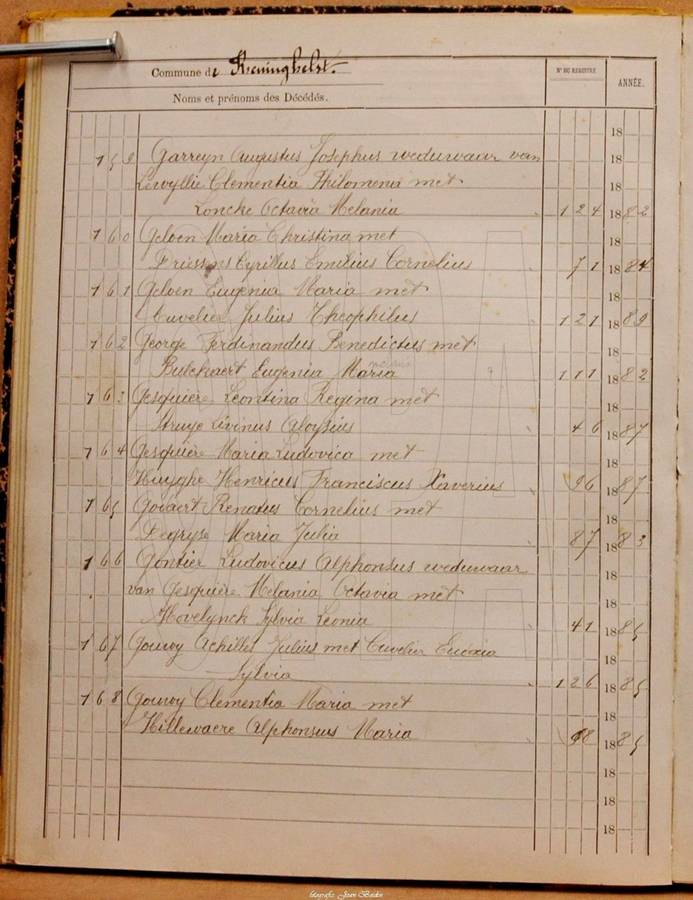 Commune de Reninghelst.
Noms et prénoms des Décédés. N° DU REGISTRE ANNÉE.
18
159 Garreyn Augustus Josephus weduwaar van 18
Lewyllie Clementia Philomena met 18
Loncke Octavia Melania 124 1882
160 Geloen Maria Christina met 18
Driessens Cyrillus Emilius Cornelius 71 1884
161 Geloen Eugenia Maria met 18
Cuvelier Julius Theophilus 121 1889
162 George Ferdinandus Benedictus met 18
Bulckaert Eugenia Maria 111 1882
163 Gesquiere Leontina Regina met 18
Struye Livinus Aloysius 46 1887
164 Gesquière Maria Ludovica met 18
Huyghe Henricus Franciscus Xaverius 96 1887
165 Govaert Renatus Cornelius met 18
Degryse Maria Julia 87 1883
166 Gontier Ludovicus Alphonsus weduwaar 18
van Gesquière Melania Octavia met 18
Hovelynck Sylvia Leonia 41 1885
167 Gouwy Achilles Julius met Cuvelier Eudoxia 18
Sylvia 126 1885
168 Gouwy Clementia Maria met 18
Hillewaere Alphonsus Maria 98 1885
18
18
18
fotografie Johan Beschn